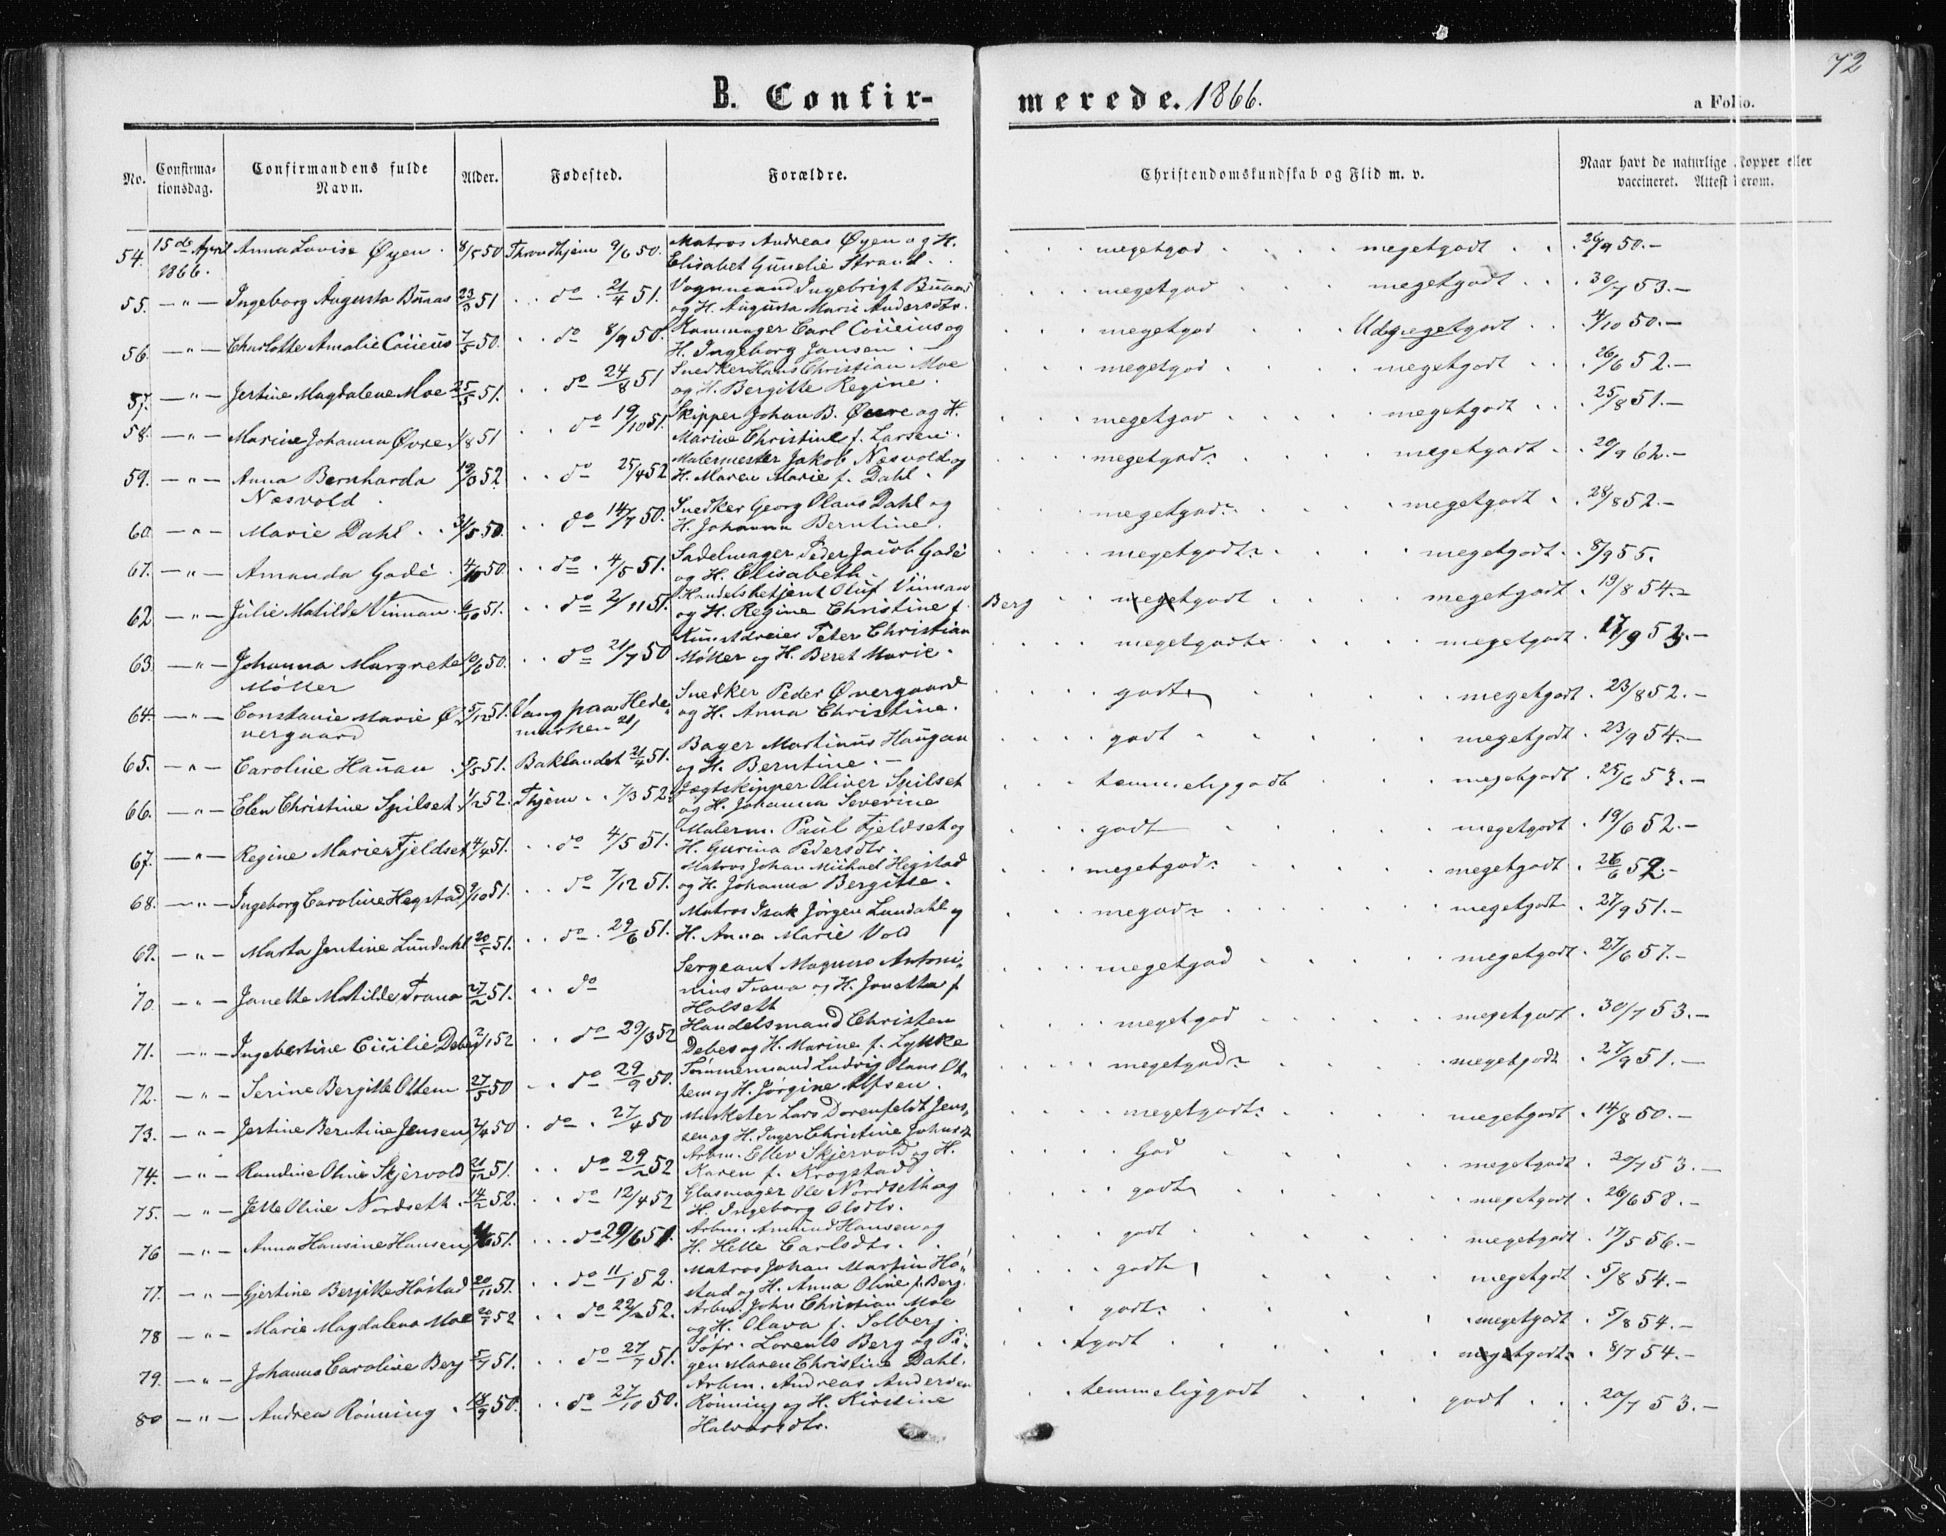 72
B. Confir-
merede. 1866.
a Folio.
No.
Confirma-
tionsdag.
Confirmandens fulde
Navn.
Alder.
Fødested.
Forældre.
Christendomskundskab og Flid m. v.
Naar havt de naturlige Kopper eller
vaccineret. Attest herom.
54. 15de April 1866. Anna Lovise Øyen 8/5 50 Throndhjem 9/6 50. Matros Andreas Øyen og H. megetgod megetgodt 26/9 50.-
Elisabet Gunelie Strand.
55. -"- Ingeborg Augusta Bunas 23/3 51 do 21/4 51. Vognmand Ingebrigt Bunas megetgod megetgodt 30/7 53.-
og H. Augusta Marie Andersdtr.
56. -"- Charlotte Amalie 7/5 50. do 8/9 50. Carl og megetgod Udmegetgodt 4/10 50.-
H. Ingeborg Jansen.
57. -"- Jertine Magdalene Moe 25/5 51. do 24/8 51 Snedker Hans Christian Moe megetgod megetgodt 26/6 52.-
og H. Bergitte Regine.
58. -"- Marine Johanna Øvre 1/8 51 do 19/10 51. Skipper Johan B. Øvre og H. megetgod megetgodt 25/8 51.-
Marine Christine f. Larsen.
59. -"- Anna Bernharda 52. do 25/4 52 Malermester Jakob Næsvold og megetgod megetgodt 20/9 62.-
Næsvold. H. Maren Marie f. Dahl.
60. -"- Marie Dahl 3/5 50. do 14/7 50. Snedker Georg Olaus Dahl og megetgod megetgodt 28/8 52.-
H. Johanna Berntine.
61. -"- Amanda Gadé 4/10 50. do 4/5 51. Sadelmager Peder Jacob Gadé megetgodt megetgodt 8/9 55.
og H. Elisabeth.
62 -"- Julie Matilde Vinnan 51. do 2/11 51. Handelsbetjent Oluf Vinnan megetgodt megetgodt 19/8 54.-
og H. Regine Christine f. Berg
63. -"- Johanna Margrete 10/6 50. do 21/7 50 Kunstdreier Peter Christian megetgodt megetgodt 17/9 53.-
Möller Möller og H. Beret Marie.
64. -"- Constanie Marie Ø- 5/12 51. Vang paa Hede- Snedker Peder Øvergaard godt megetgodt 23/8 52.-
vergaard marken 21/ og H. Anna Christine.
65. -"- Caroline Haugan 5/5 51. Baklandet 21/4 51. Martinus Haugan godt megetgodt 23/9 54.-
og H. Berntine.
66. -"- Elen Christine Spilset 1/2 52. Thjem 7/3 52. Jægtskipper Oliver Spilset temmeliggodt megetgodt 25/6 53.-
og H. Johanna Severine
67. -"- Regine Marie Fjeldset 4/4 51. do 4/5 51. Malerm. Paul Fjeldset og godt megetgodt 19/6 52.-
H. Gurina Pedersdtr.
68. -"- Ingeborg Caroline Hegstad 9/10 51. do 7/12 51. Matros Johan Michael Hegstad megetgod megetgodt 26/6 52.-
og H. Johanna Bergitte.
69. -"- Marta Jentine Lundahl 20/5 51. do 29/6 51. Matros Isak Jörgen Lundahl og megod megetgodt 27/9 51.-
H. Anna Marie Vold
70 -"- Janette Matilde Trana 27/2 51. do Sergeant Magnus Antoni- megetgod megetgodt 27/6 57.-
nius Trana og H. Janetta f.
Holseth
71. -"- Ingebertine Cicilie Debes 2/1 52 do 29/3 52 Handelsmand Christen megetgod megetgodt 30/7 53.-
Debes og H. Marine f. Lykke
72. -"- Serine Bergitte Ottem 27/5 50 do 29/9 50. Tömmermand Ludvig Olaus Ot- megetgod megetgodt 27/9 51.-
tem og H. Jørgine Alfsen.
73. -"- Jertine Berntine Jensen 2/4 50 do 27/4 50 Musketer Lars Dorenfeldt Jens- megetgodt megetgodt 14/8 50.-
sen og H. Inger Christine Johnsdtr
74. -"- Randine Oline Skjervold 21/12 51. do 29/2 52 Arbm. Ellev Skjervold og H. God megetgodt 20/7 53.-
Karen f. Krogstad
75. -"- Jette Oline Nordseth 14/2 52. do 12/4 52 Glasmager Ole Nordseth og godt megetgodt 26/6 58.-
H. Ingeborg Olsdtr.
76 -"- Anna Hansine Hansen 6 51. do 29/6 51. Arbm. Amund Hansen og godt megetgodt 17/5 56.-
H. Helle Carlsdtr.
77. -"- Gjertine Bergitte Höstad 20/11 51. do 11/1 52. Matros Johan Martin Hö- godt megetgodt 5/8 54.-
stad og H. Anna Oline f. Berg.
78 -"- Marie Magdalena Moe 20/1 52 do 22/2 52. Arbm. John Christian Moe godt megetgodt 5/8 54.-
og H. Olava f. Solberg.
79. -"- Johanna Caroline Berg 5/7 51. do 27/7 51. Lorents Berg og Pi- godt megetgodt 8/7 54.-
gen Maren Christine Dahl.
80 -"- Andrea Rönning 18/9 50. do 27/10 50. Arbm. Andreas Andersen temmeliggodt godt 20/7 53.-
Rönning og H. Kirstine
Halvorsdtr.